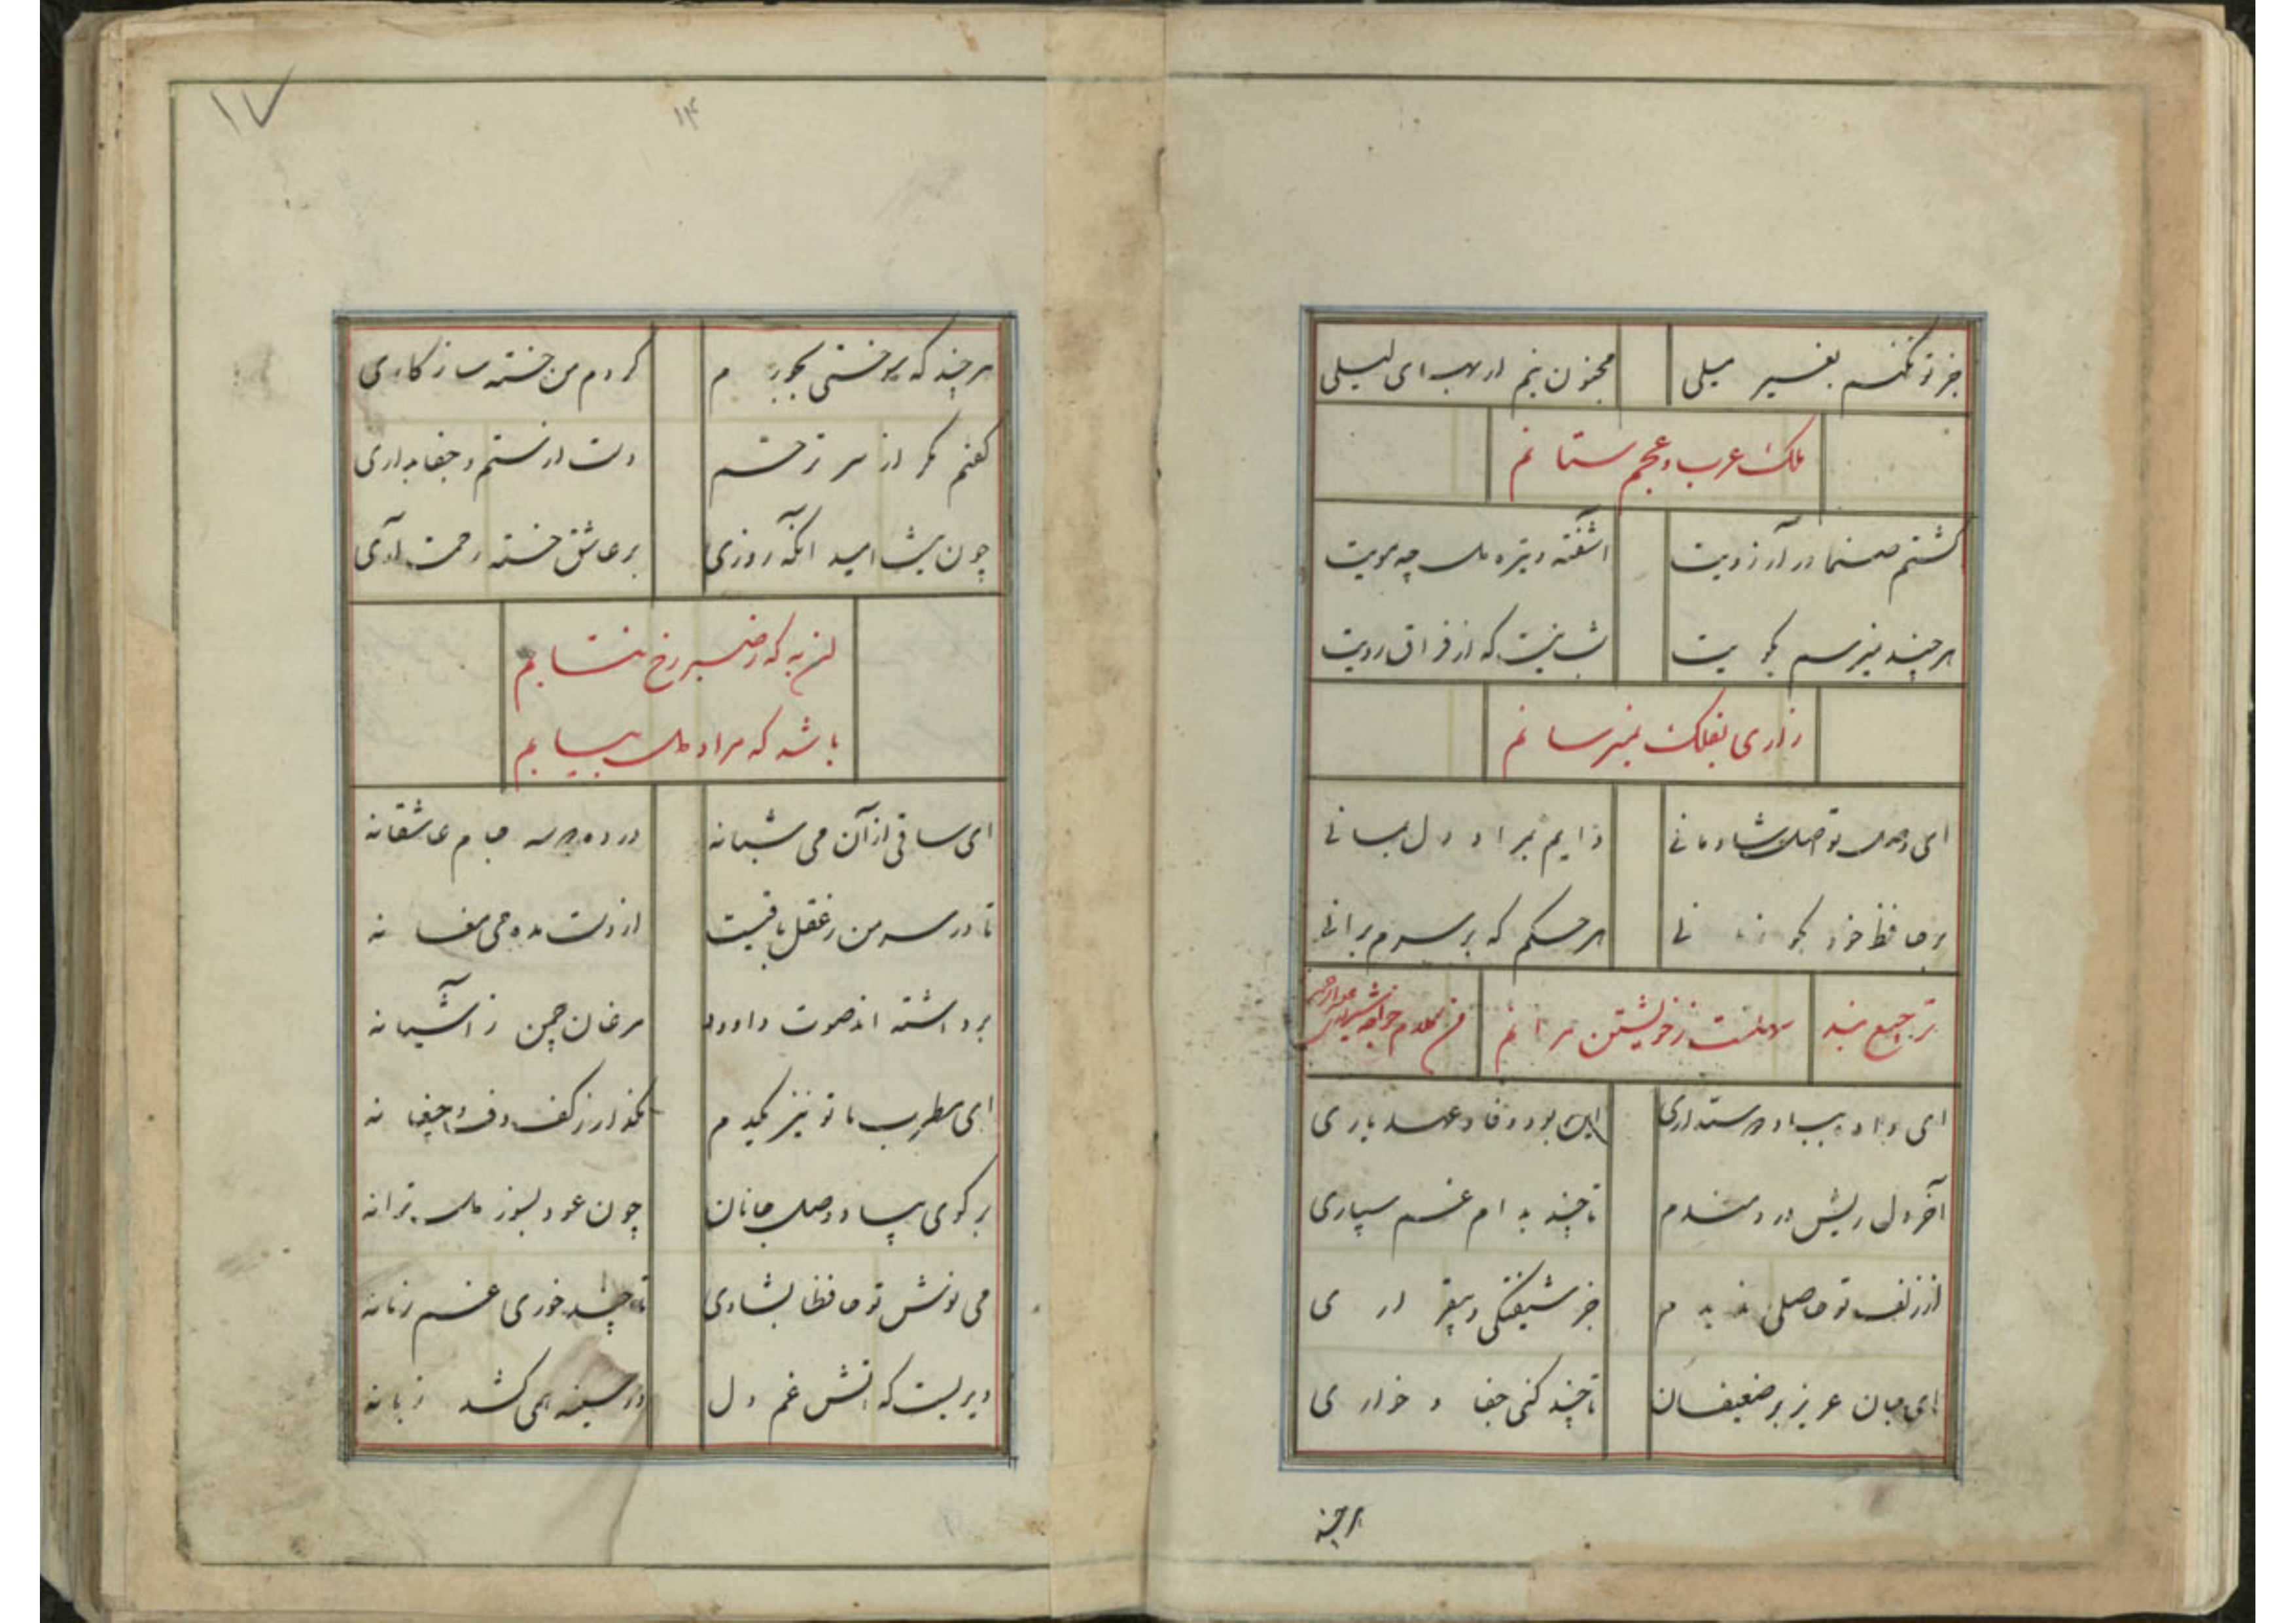 جز تو نکنم بغیر میلی مجنون نیم ای لیلی
ملک عرب و عجم ستانم
گشتم صنما در آرزویت اشفته و تیره دل چه مویت
هر چند نمیرسم بکویت شب نیست که از فراق رویت
زاری بفلک نمیرسانم
ای وصل تو اصل شادمانی دایم بمراد دل بمانی
بر حافظ خود بخو نی هر حکم که بر سرم برانی
ترجیع بند سهلست ز خویشتن مرانم من کلام خواجه
ای داده بباد دوستداری این بود وفا و عهد یاری
آخر دل ریش دردمندم تا چند بدام غم سپاری
از زلف تو حاصلی ندیدم جز شیفتگی و بیقراری
ای جان عزیز بر ضعیفان تا چند کنی جفا و خواری
هر چند
۱۷
۱۴
هر چند که سوختی بجورم کردم من خسته سازکاری
گفتم مگر از سر ترحم دست از ستم و جفا بداری
چون نیست امید آنکه روزی بر عاشق خسته رحمت آری
آن به که ز صبر رخ نتابم
باشد که مراد دل بیابم
ای ساقی از آن می شبانه در ده دو سه جام عاشقانه
تا در سر من ز عقل باقیست از دست مده می مغانه
برداشته اند صوت داود مرغان چمن ز آشیانه
ای مطرب ما تو نیز یکدم مگذار ز کف دف و چغانه
بر گوی بیاد وصل جانان چون عود بسوز دل ترانه
می نوش تو حافظا بشادی تا چند خوری غم زمانه
دیریست که اتش غم دل در سینه همی کشد زبانه